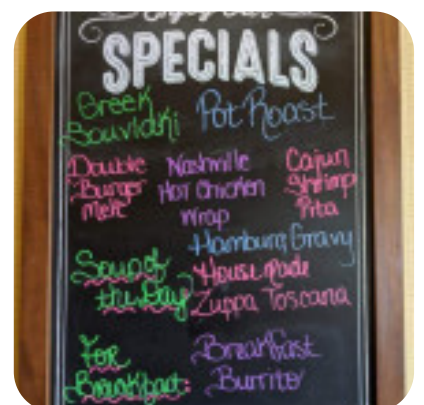 Enjoy Our
SPECIALS
Greek
Souvlaki
Pot Roast
Double
Burger
Melt
Nashville
Hot Chicken
Wrap
Cajun
Shrimp
Pita
Hamburg Gravy
Soup of
the Day
Housemade
Zuppa Toscana
For
Breakfast:
Breakfast
Burrito